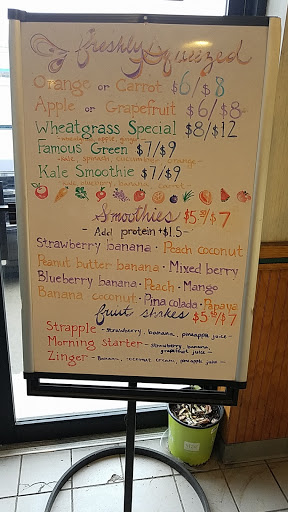 freshly Squeezed
Orange or Carrot $6/$8
Apple or Grapefruit $6/$8
Wheatgrass Special $8/$12
Famous Green $7/$9
- kale, spinach, cucumber, orange -
Kale Smoothie $7/$9
- kale, blueberry, banana, carrot -
Smoothies $5.50/$7
- Add protein +$1.5 -
Strawberry banana · Peach coconut
Peanut butter banana · Mixed berry
Blueberry banana · Peach · Mango
Banana coconut · Pina colada · Papaya
fruit shakes $5.50/$7
Strapple - strawberry, banana, pineapple juice -
Morning starter - strawberry, banana,
grapefruit juice -
Zinger - Banana, coconut cream, pineapple juice -